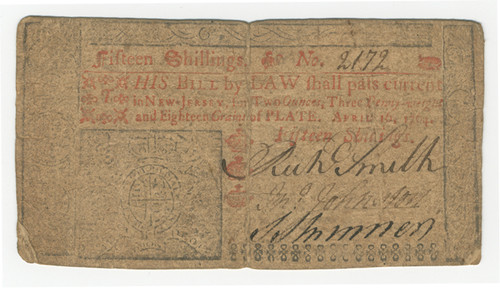 Fifteen Shillings. No. 2172
THIS BILL by LAW shall pass current
in NEW-JERSEY, for Two Ounces, Three Penny-weight
and Eighteen Grains of PLATE. APRIL
Fifteen Shillings.
Smith
Jno. Johnston